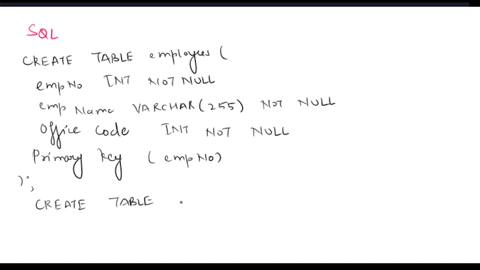 SQL
CREATE TABLE employees (
empNo INT NOT NULL
emp Name VARCHAR (255) NOT NULL
Office Code INT NOT NULL
Primary key (empNo)
);
CREATE TABLE